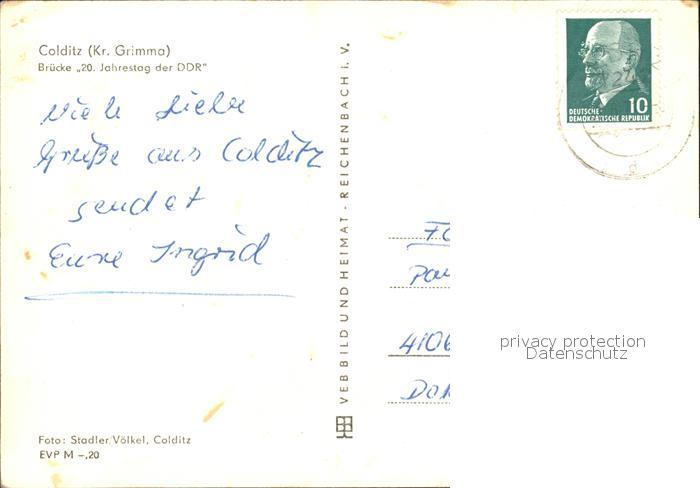 Colditz (Kr. Grimma)
Brücke „20. Jahrestag der DDR"
Viele liebe
Grüße aus Colditz
sendet
Eure Ingrid
Foto: Stadler/Völkel, Colditz
EVP M -,20
VEB BILD UND HEIMAT · REICHENBACH i. V.
DEUTSCHE
DEMOKRATISCHE REPUBLIK
10
4106
privacy protection
Datenschutz